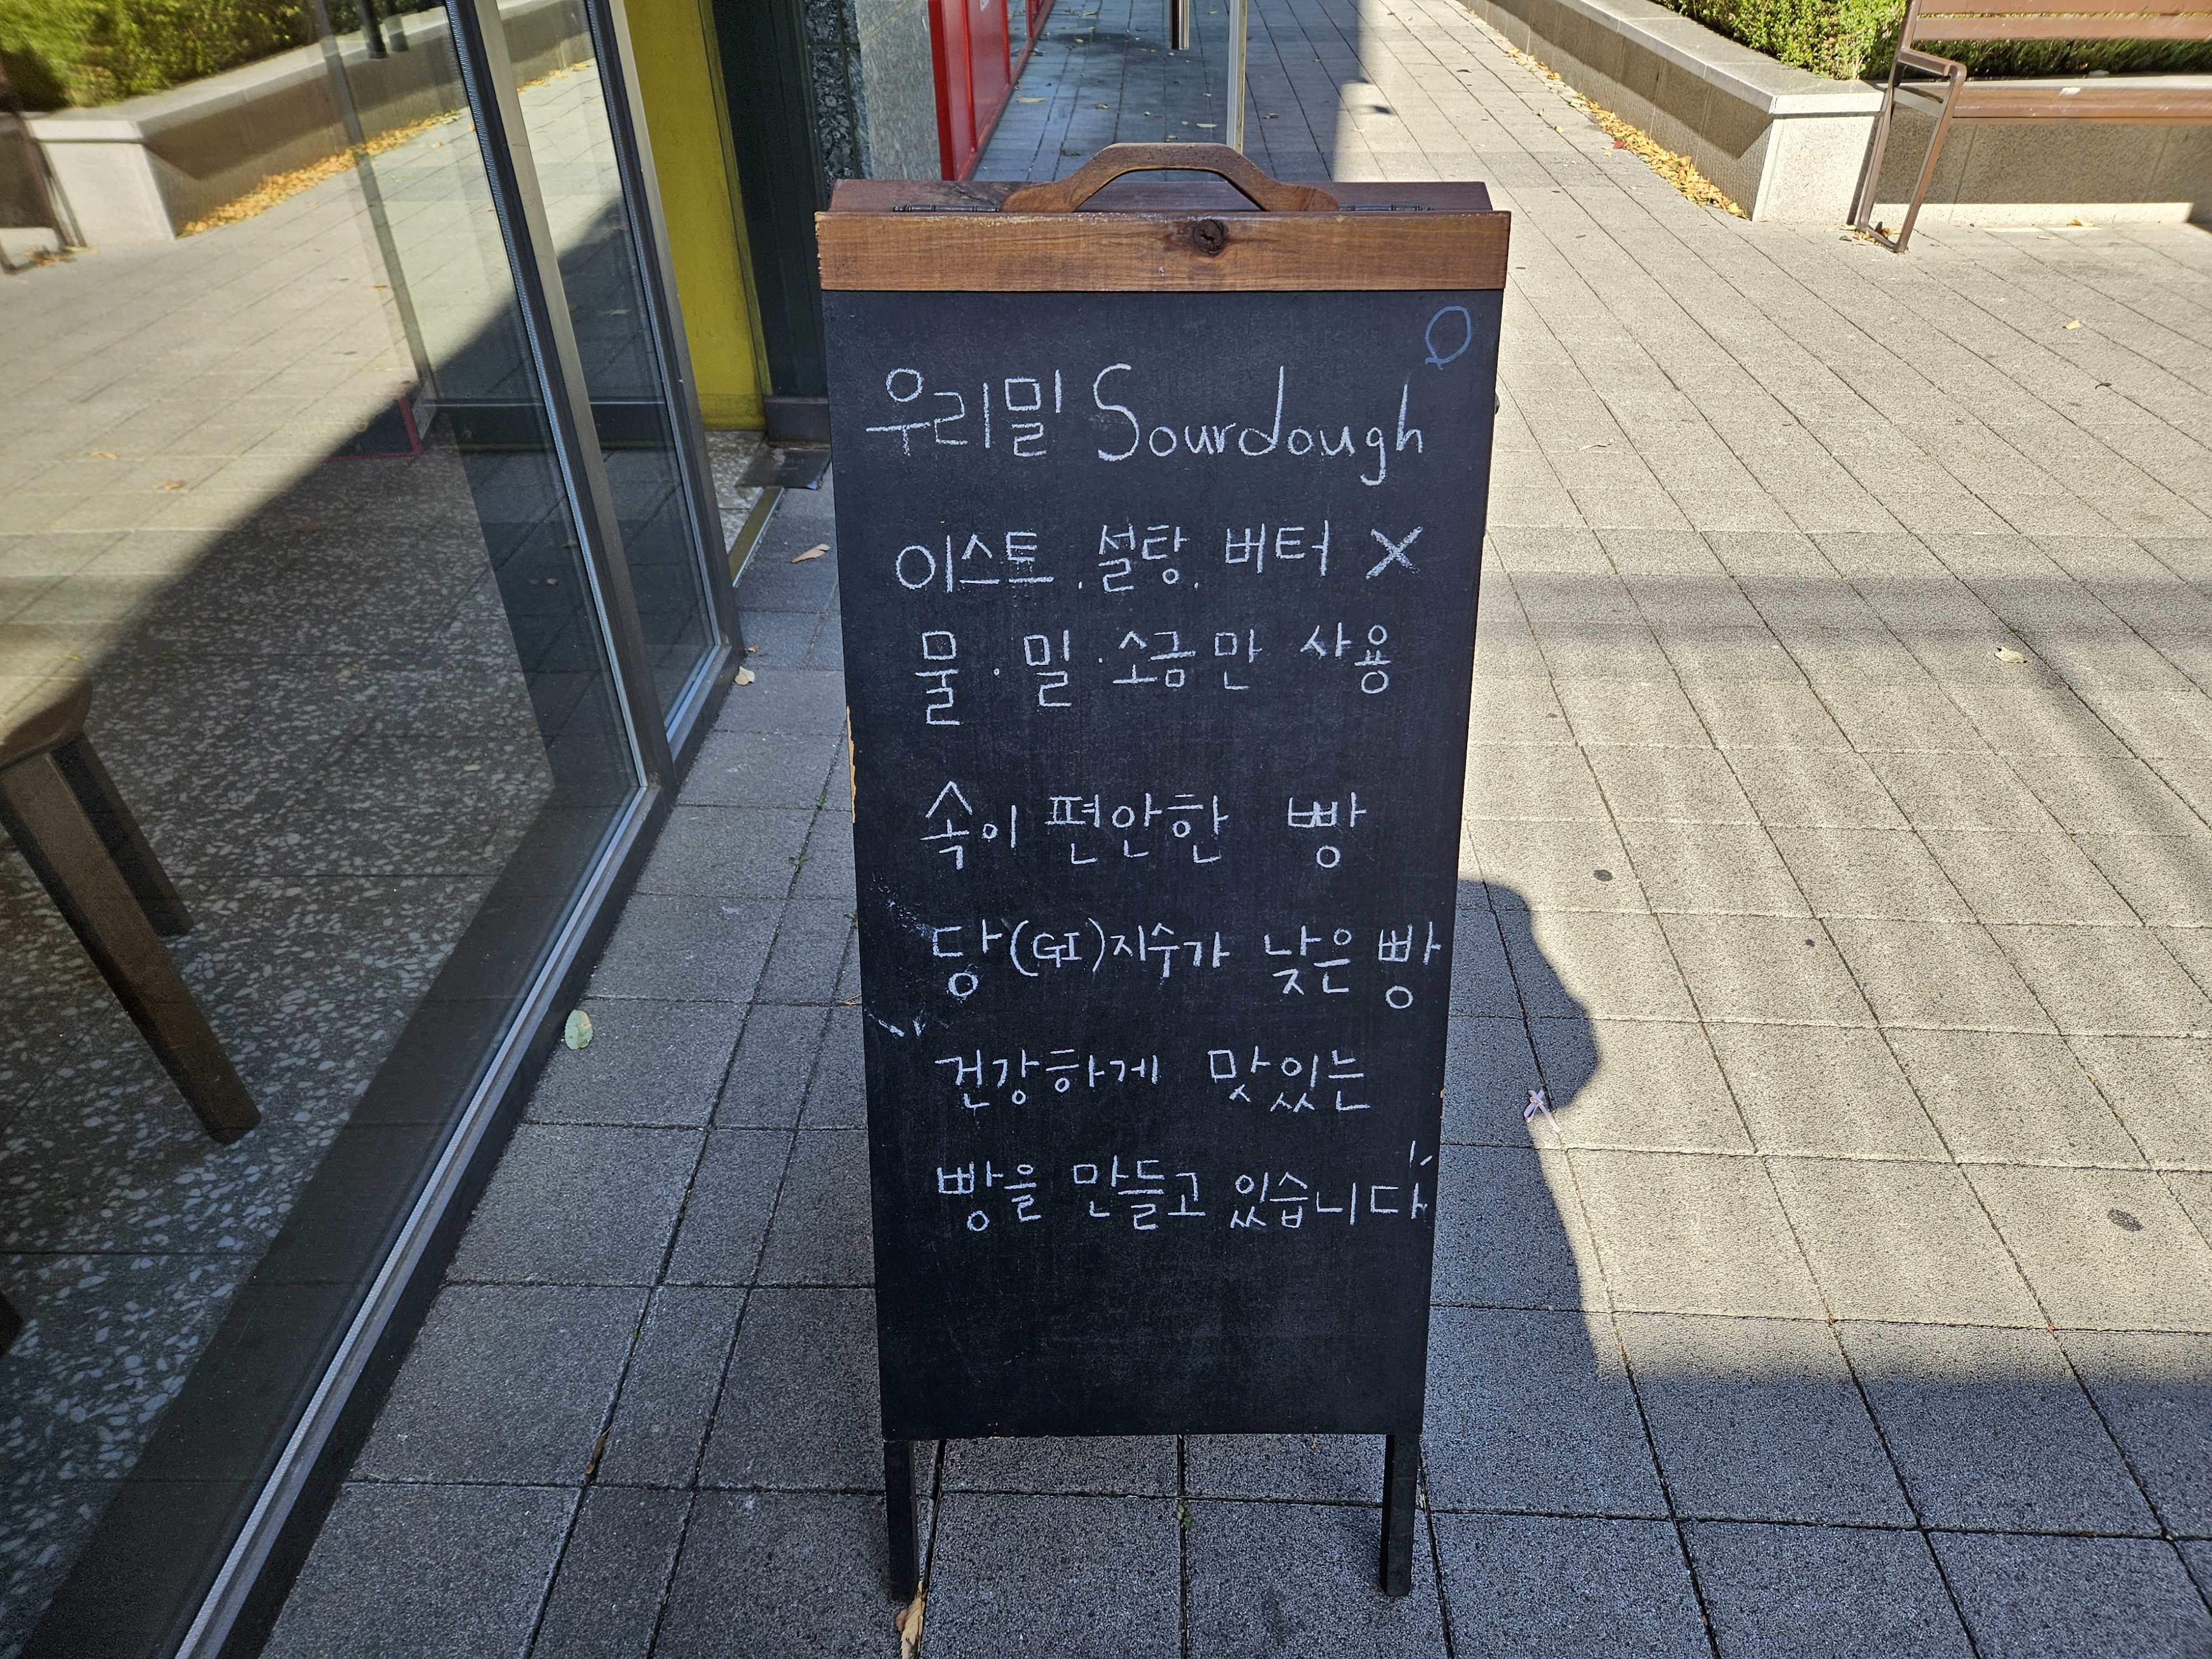 우리밀 Sourdough
이스트, 설탕, 버터 X
물·밀·소금만 사용
속이 편안한 빵
당(GI)지수가 낮은 빵
건강하게 맛있는
빵을 만들고 있습니다